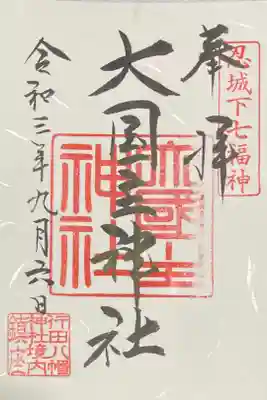 奉拝
忍城下七福神
大国主神社
大國主
神社
令和三年九月六日
行田八幡
神社境内
鎮座